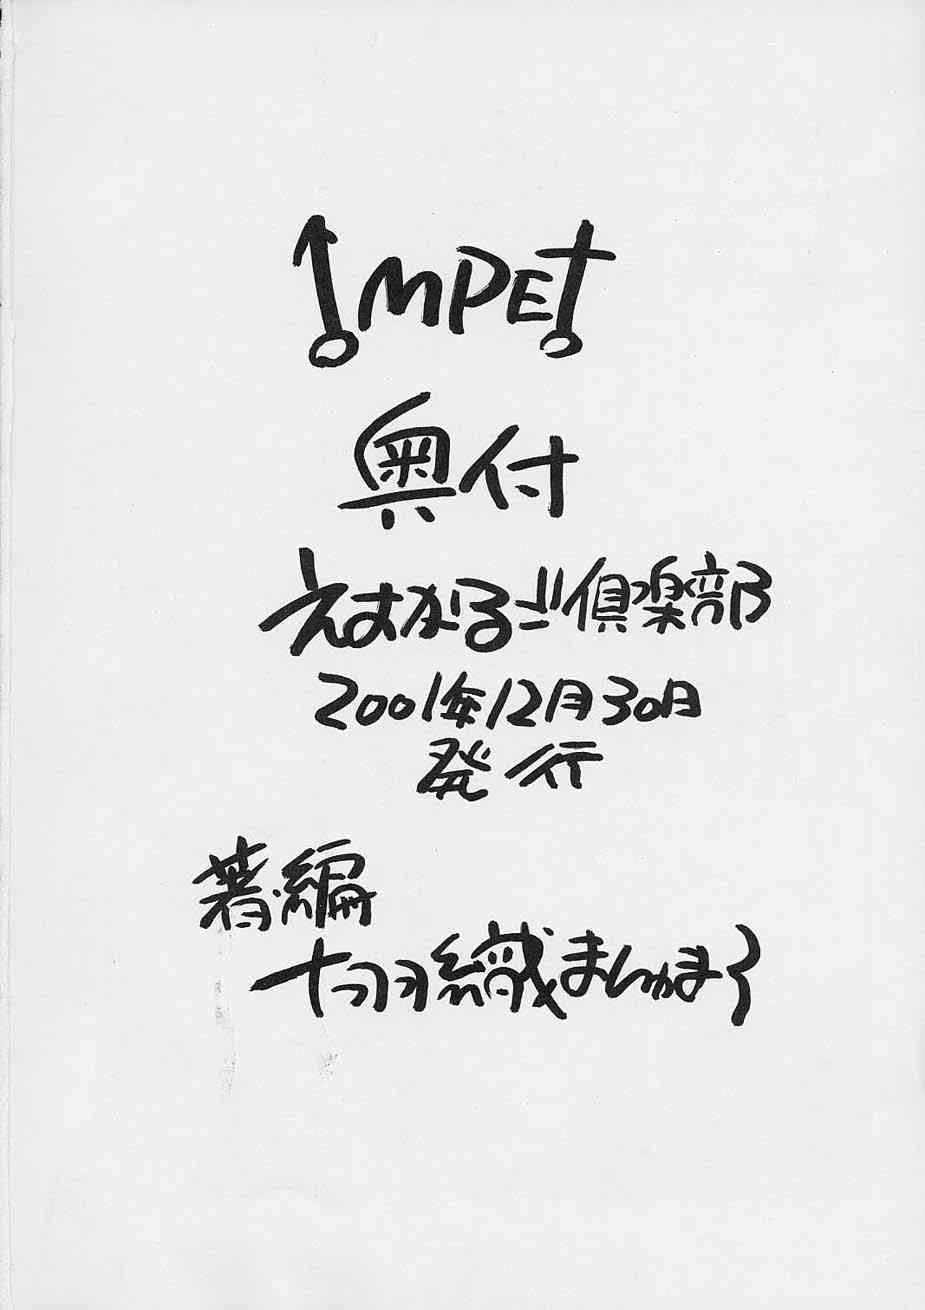 IMPEt
奥付
えすかる!!倶楽部
2001年12月30日
発行
著・編
十羽織まんかま～